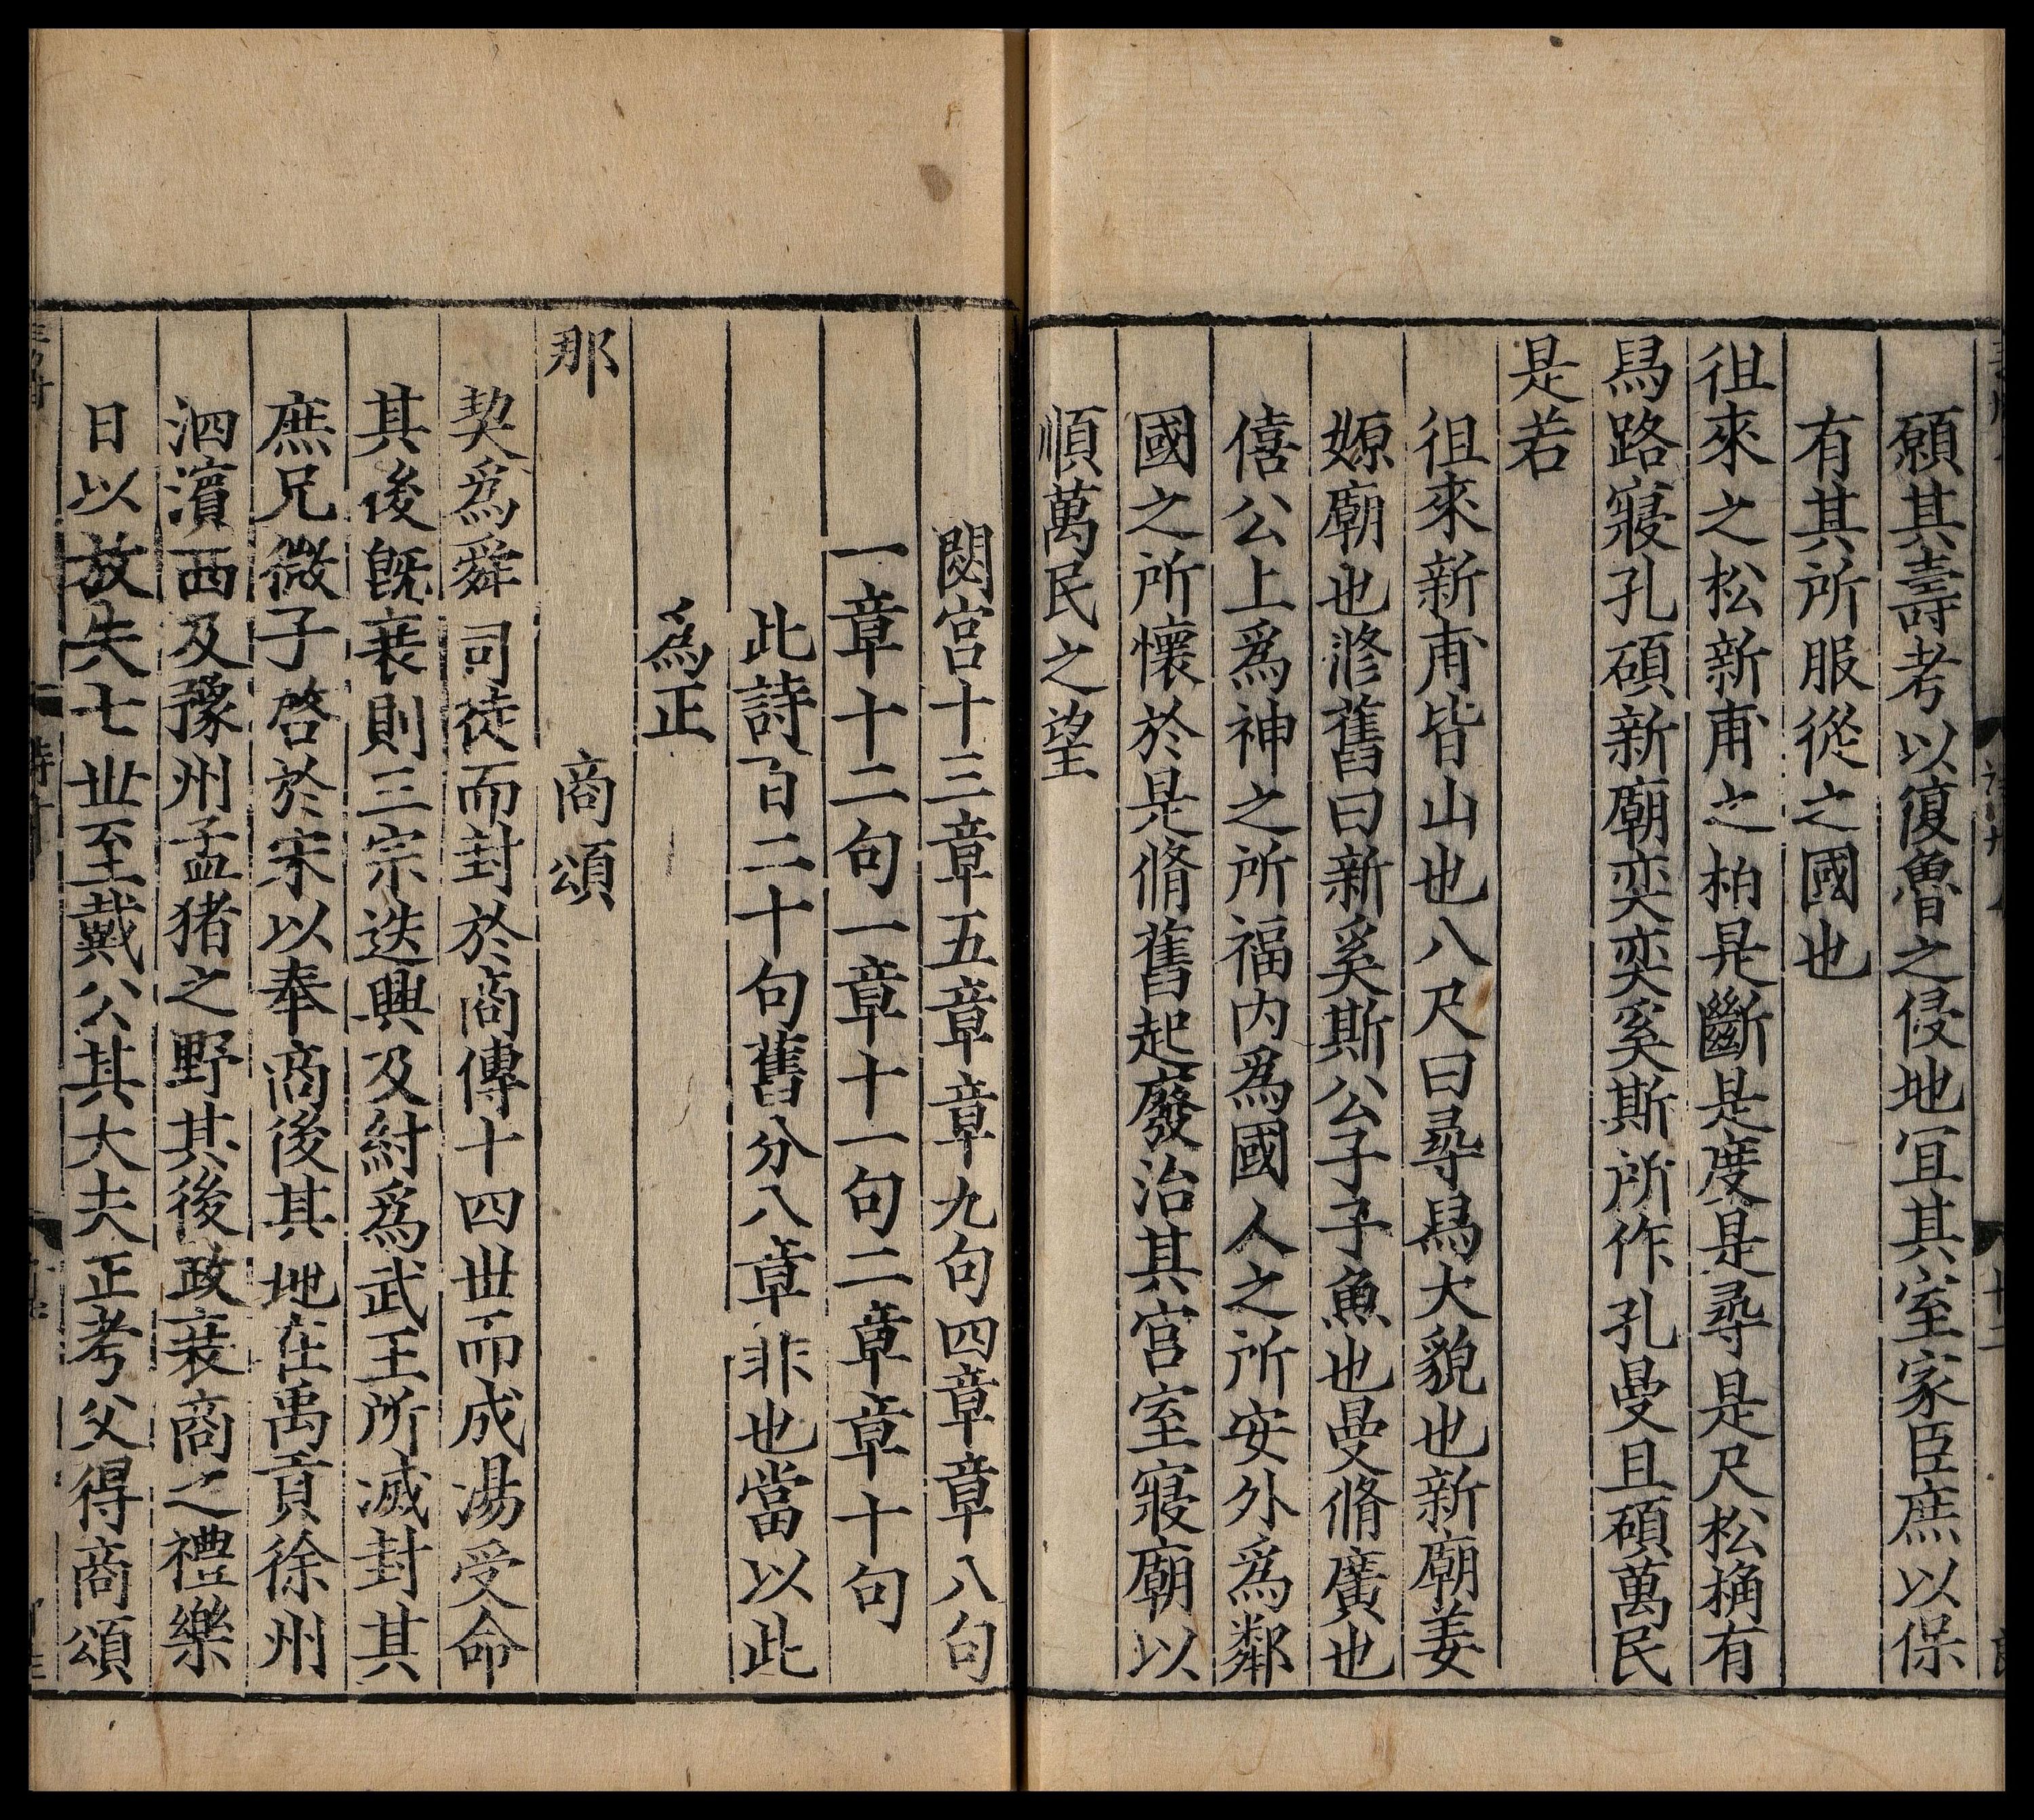 願其壽考以復魯之侵地冝其室家臣庶以保
有其所服從之國也
徂來之松新甫之柏是斷是度是尋是尺松桷有
舄路寢孔碩新廟奕奕奚斯所作孔曼且碩萬民
是若
徂來新甫皆山也八尺曰尋舄大貌也新廟姜
嫄廟也滫舊曰新奚斯公子子魚也曼脩廣也
僖公上爲神之所福内爲國人之所安外爲鄰
國之所懷於是脩舊起廢治其宮室寢廟以
順萬民之望
閟宮十三章五章章九句四章章八句
一章十二句一章十一句二章章十句
此詩百二十句舊分八章非也當以此
爲正
商頌
那
契爲舜司徒而封於商傳十四丗而成湯受命
其後旣衰則三宗迭興及紂爲武王所滅封其
庶兄微子啓於宋以奉商後其地在禹貢徐州
泗濱西及豫州孟猪之野其後政衰商之禮樂
日以放失七丗至戴公其大夫正考父得商頌